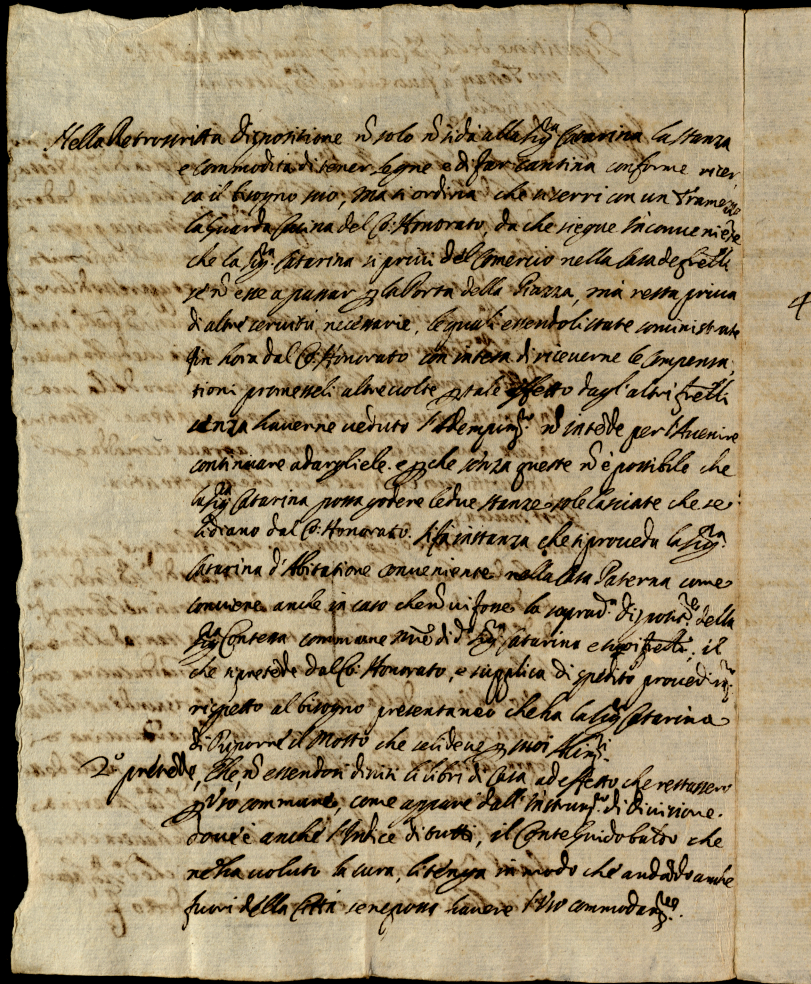 Nella Retroscritta dispositione nõ solo nõ si dà alla Sig.ra Catarina la stanza
e commodità di tener legne e di far Cantina conforme ricer-
ca il bisogno suo, ma si ordina che si serri con un Trameza
la Guarda Cucina del Co: Honorato, da che siegue Inconveniẽte
che la Sig.ra Catarina si privi del Comercio nella Casa de frẽlli
se nõ esce a passar p la Porta della Piazza, mà resta priva
di altre servitù necessarie, le quali essendoli state somministrate
fin hora dal Co: Honorato con intesa di riceverne le Compensa-
tioni promesseli altre volte p tale effetto dagl'altri frẽlli
senza haverne veduto l'Adempim.to nõ intẽde per l'Avenire
continuare a dargliele. e p che senza queste nõ è possibile che
la Sig.ra Catarina possa godere le due stanze sole lasciate che se
li diano dal Co: Honorato. Si fa instanza che si proveda la Sig.ra
Catarina d'Abitatione conveniente nella Casa Paterna come
conviene anche in caso che nõ vi fosse la soprad.a disposit.ne della
Sig.ra Contessa commune m̃re di d.a Sig.ra Catarina e suoi frẽlli; il
che si pretẽde dal Co: Honorato, e supplica di spedito provedim.to
rispetto al bisogno presentaneo che ha la Sig.ra Catarina
di il Motto che se li deve p suoi Alim.ti
2.o pretẽde, Che nõ essendosi divisi li libri di Casa ad effetto che restassero
p Uso commune, come appare dall'Instrum.to di divisione.
dove è anche l'Indice di tutti, il Conte Guidobaldo che
ne ha voluto la cura, li tenga in modo che andãdo anche
fuori della Città se ne possa havere l'Uso commodam.te.